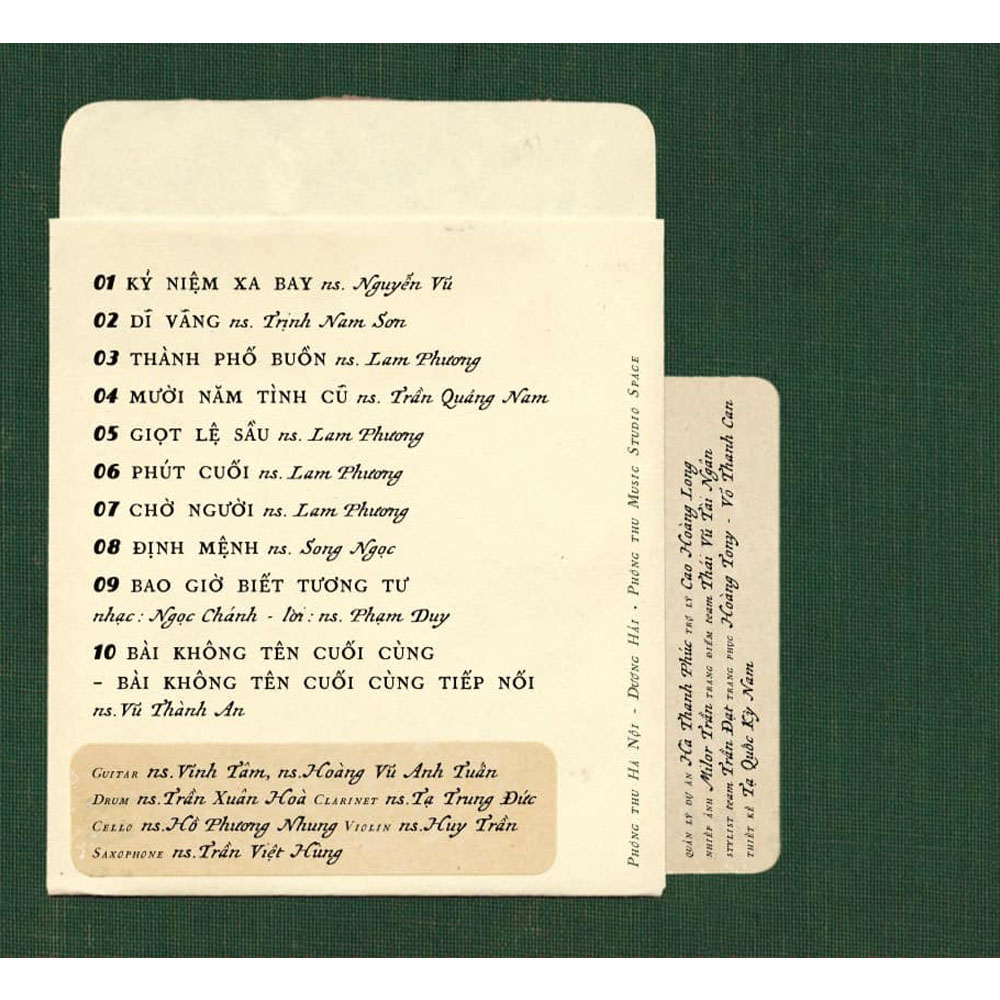 01 KỶ NIỆM XA BAY ns. Nguyễn Vũ
02 DĨ VÃNG ns. Trịnh Nam Sơn
03 THÀNH PHỐ BUỒN ns. Lam Phương
04 MƯỜI NĂM TÌNH CŨ ns. Trần Quảng Nam
05 GIỌT LỆ SẦU ns. Lam Phương
06 PHÚT CUỐI ns. Lam Phương
07 CHỜ NGƯỜI ns. Lam Phương
08 ĐỊNH MỆNH ns. Song Ngọc
09 BAO GIỜ BIẾT TƯƠNG TƯ
nhạc: Ngọc Chánh - lời: ns. Phạm Duy
10 BÀI KHÔNG TÊN CUỐI CÙNG
– BÀI KHÔNG TÊN CUỐI CÙNG TIẾP NỐI
ns. Vũ Thành An
GUITAR ns. Vĩnh Tâm, ns. Hoàng Vũ Anh Tuấn
DRUM ns. Trần Xuân Hoà CLARINET ns. Tạ Trung Đức
CELLO ns. Hồ Phương Nhung VIOLIN ns. Huy Trần
SAXOPHONE ns. Trần Việt Hùng
PHÒNG THU HÀ NỘI - DƯƠNG HẢI • PHÒNG THU MUSIC STUDIO SPACE
QUẢN LÝ DỰ ÁN Hà Thanh Phúc TRỢ LÝ Cao Hoàng Long
NHIẾP ẢNH Milor Trần TRANG ĐIỂM team Thái Vũ Tài Ngân
STYLIST team Trần Đạt TRANG PHỤC Hoàng Tony - Võ Thanh Can
THIẾT KẾ Tạ Quốc Kỳ Nam